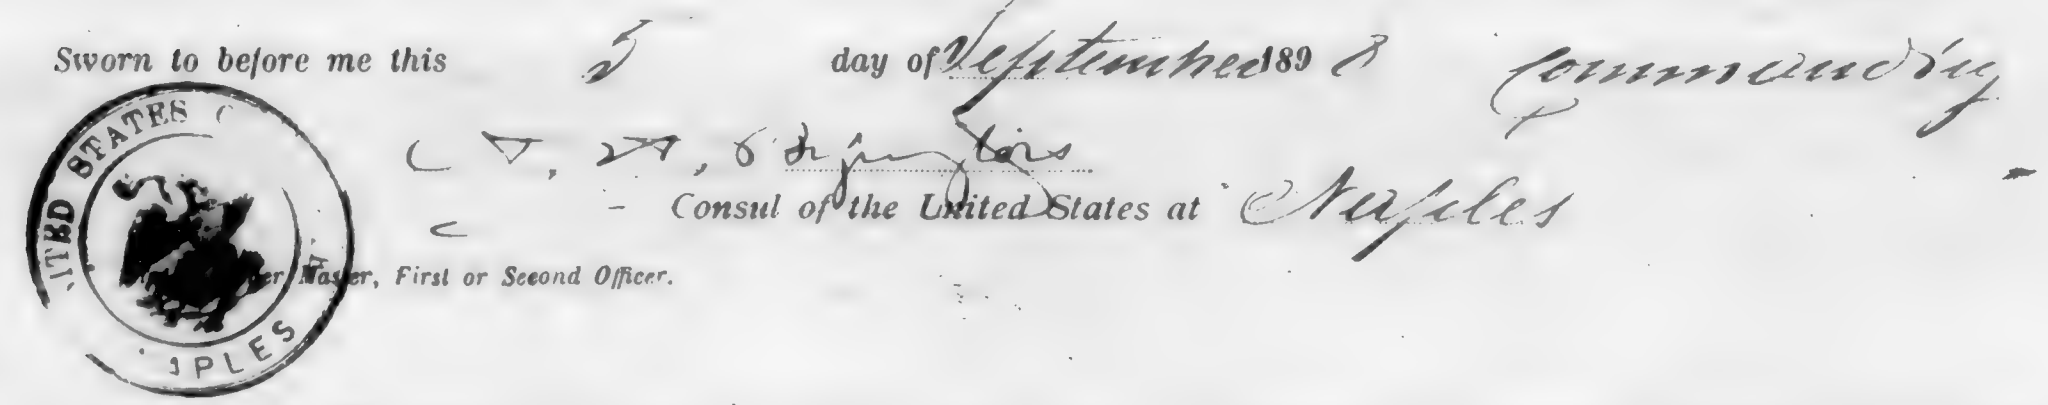 Sworn to before me this 5 day of September 1898 Commanding
Consul of the United States at Naples
Master, First or Second Officer.
UNITED STATES
NAPLES